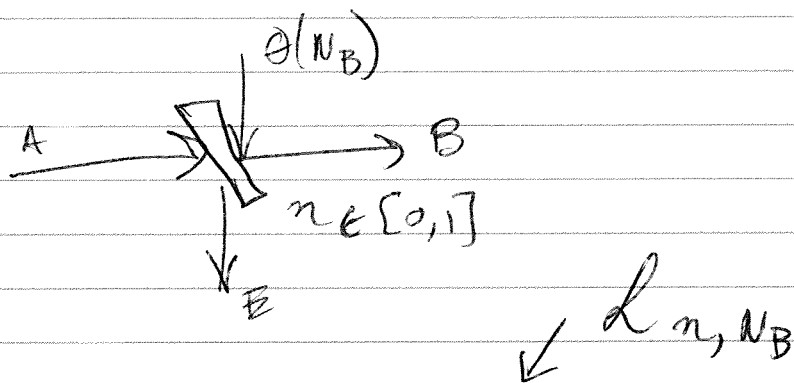 θ(N_B)
A
B
η ∈ [0,1]
E
𝓛 η, N_B